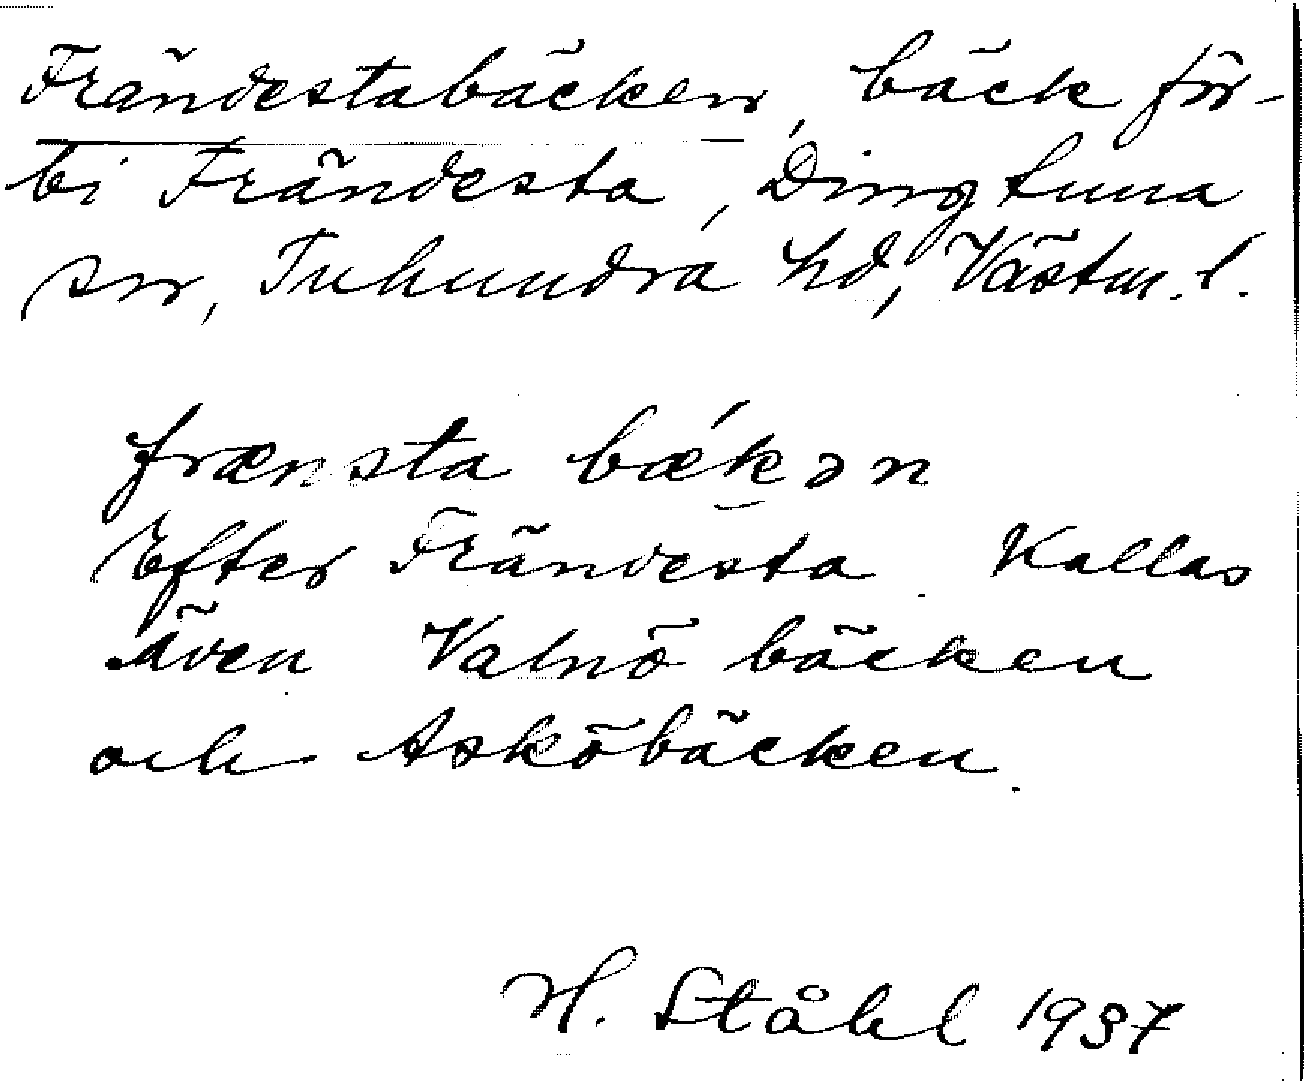 Frändestabäcken, bäck för-
bi Frändesta, Dingtuna
sn, Tuhundra hd, Västm. l.
frænsta bǽkən
Efter Frändesta. Kallas
även Valnö bäcken
och Asköbäcken.
H. Ståhl 1937